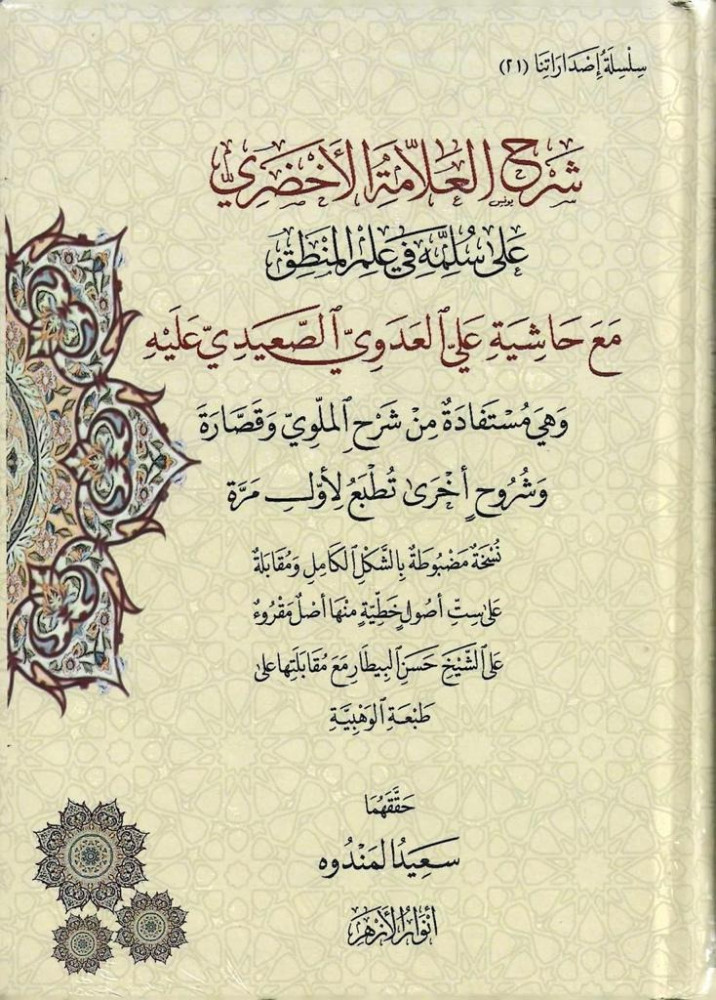 سِلْسِلَةُ إِصْدَارَاتِنَا (٢١)
شَرْحُ العَلَّامَةُ الأَخْضَرِيّ
عَلَى سُلَّمِهِ فِي عِلْمِ المَنْطِقِ
مَعَ حَاشِيَةِ عَلِيّ العَدَوِيّ الصَّعِيدِيّ عَلَيْهِ
وَهِيَ مُسْتَفَادَةٌ مِنْ شَرْحِ المَلَّوِيّ وَقَصَّارَةَ
وَشُرُوحٍ أُخْرَى تُطْبَعُ لِأَوَّلِ مَرَّة
نُسْخَةٌ مَضْبُوطَةٌ بِالشَّكْلِ الكَامِلِ وَمُقَابَلَةٌ
عَلَى سِتِّ أُصُولٍ خَطِّيَّةٍ مِنْهَا أَصْلٌ مَقْرُوءٌ
عَلَى الشَّيْخِ حَسَنِ البِيطَارِ مَعَ مُقَابَلَتِهَا عَلَى
طَبْعَةِ الوَهْبِيَّةِ
حَقَّقَهُمَا
سَعِيدُ المَنْدُوه
أَنْوَارُ الأَزْهَر